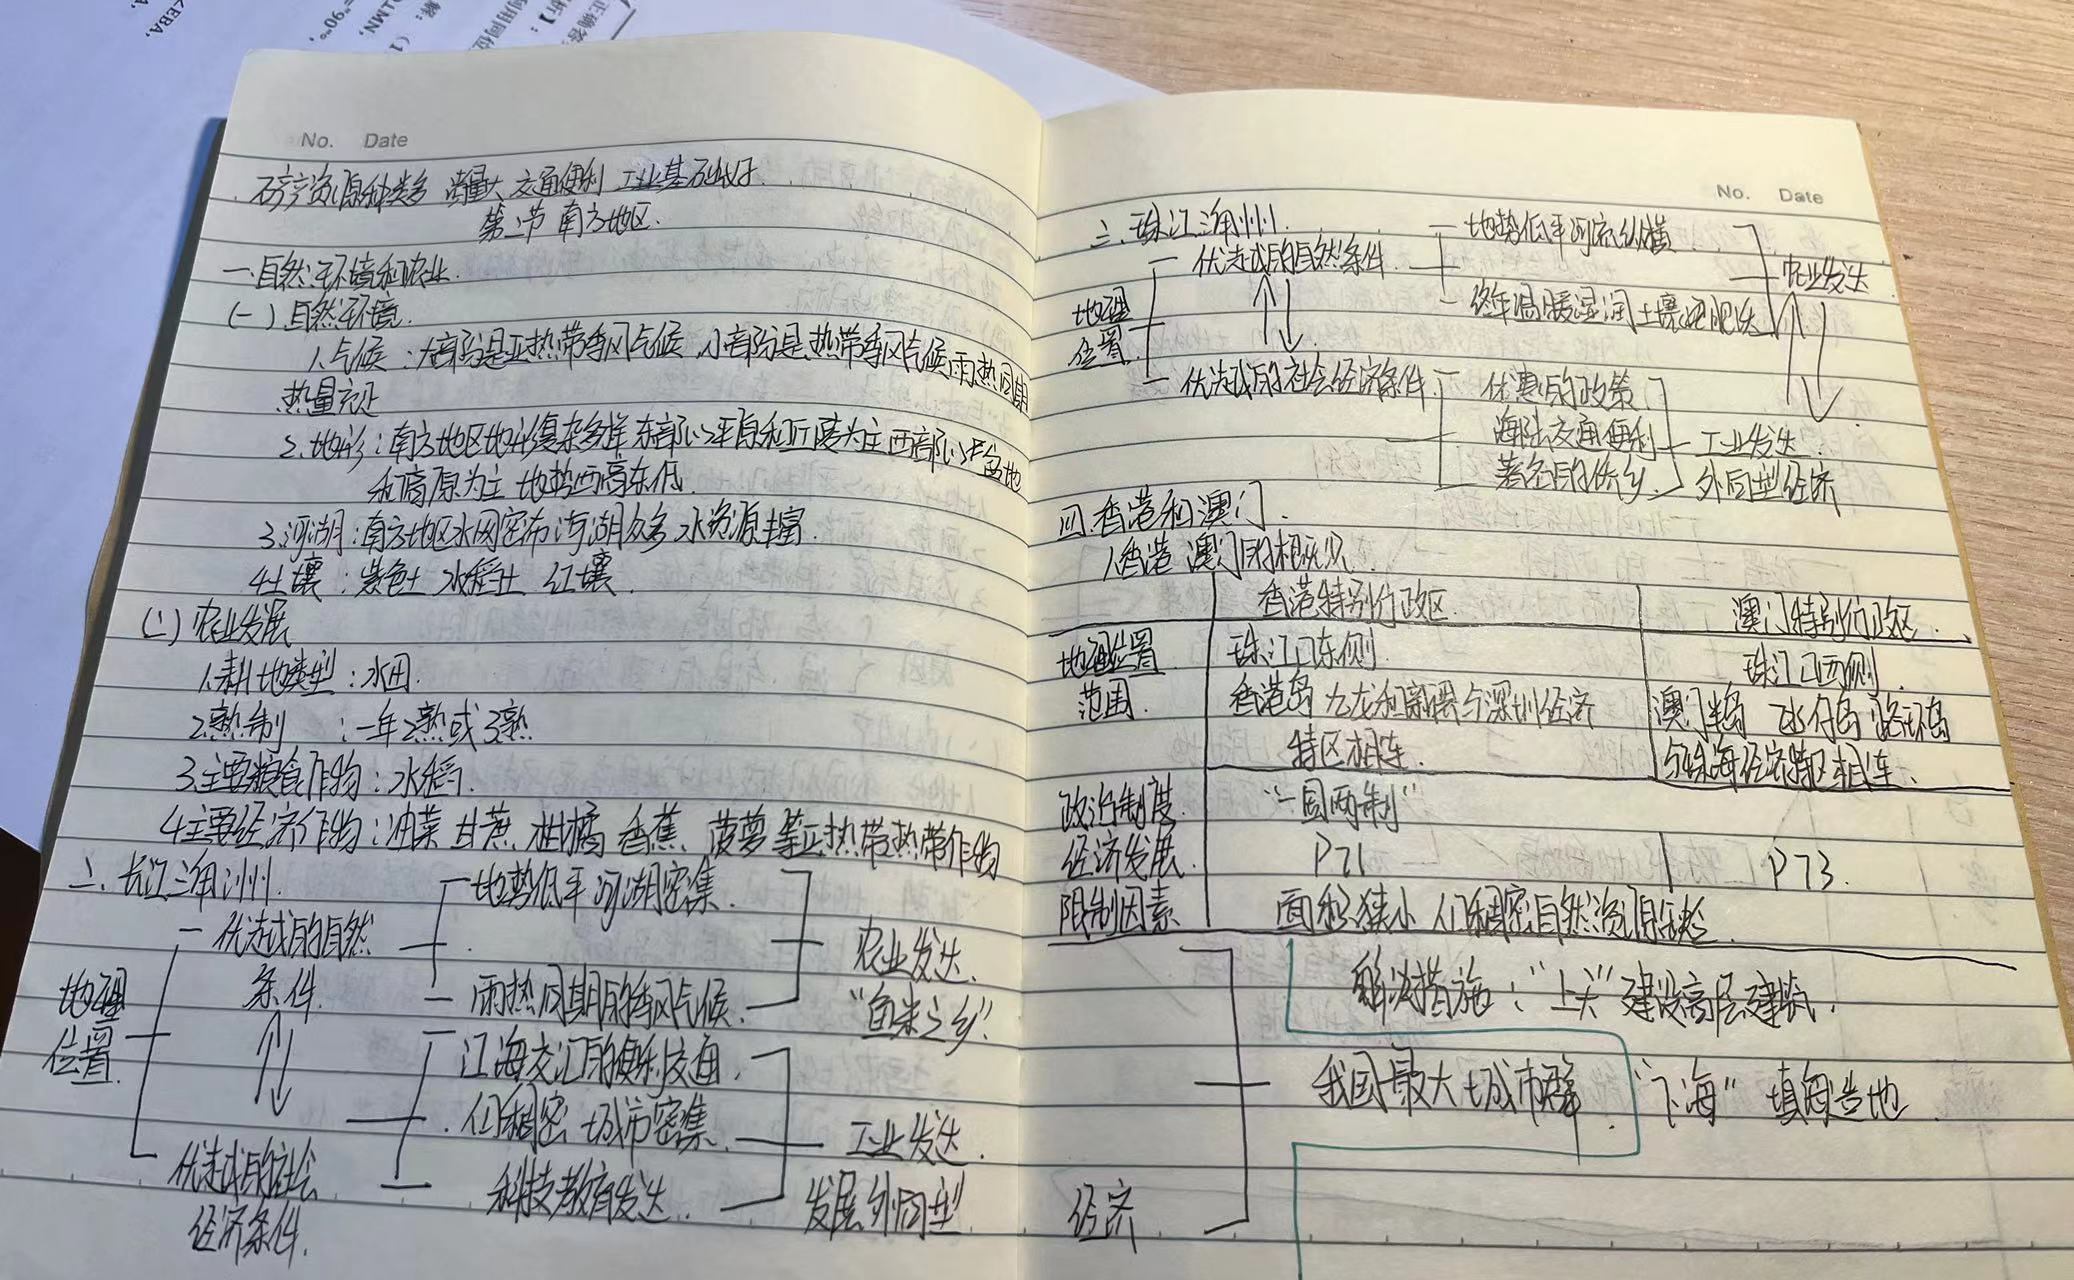 No. Date
矿产资源种类多 储量大 交通便利 工业基础好
第二节 南方地区
一.自然环境和农业
(一)自然环境
1.气候:大部分是亚热带季风气候,小部分是热带季风气候雨热同期
热量充足
2.地形:南方地区地形复杂多样 东部以平原和丘陵为主 西部以盆地
和高原为主 地势西高东低
3.河湖:南方地区水网密布 河湖众多 水资源丰富
4.土壤:紫色土 水稻土 红壤
(二)农业发展
1.耕地类型:水田
2.熟制:一年2熟或3熟
3.主要粮食作物:水稻
4.主要经济作物:油菜 甘蔗 柑橘 香蕉 菠萝等亚热带热带作物
二.长江三角洲
地理
位置
优越的自然
条件
地势低平 河湖密集
雨热同期的季风气候
农业发达
“鱼米之乡”
优越的社会
经济条件
江海交汇的便利交通
人口稠密 城市密集
科技教育发达
工业发达
发展外向型
No. Date
三.珠江三角洲
地理
位置
优越的自然条件
地势低平 河流纵横
终年温暖湿润 土壤肥沃
农业发达
优越的社会经济条件
优惠的政策
海陆交通便利
著名的侨乡
工业发达
外向型经济
四.香港和澳门
1.香港 澳门的概况
香港特别行政区 澳门特别行政区
地理位置 珠江口东侧 珠江口西侧
范围 香港岛 九龙和新界与深圳经济 澳门半岛 氹仔岛 路环岛
特区相连 与珠海经济特区相连
政治制度 “一国两制”
经济发展 P71 P73
限制因素 面积狭小 人口稠密 自然资源短缺
解决措施:“上天”建设高层建筑
我国最大城市群 “下海” 填海造地
经济